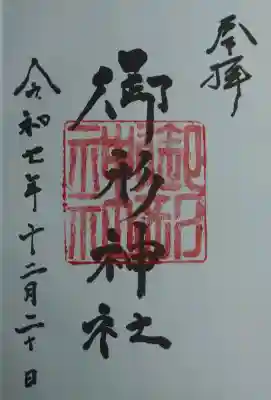 奉拝
御形神社
御形神社
令和七年十二月二十日